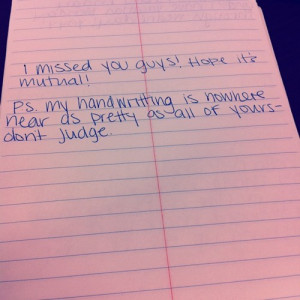 I missed you guys! Hope it's
mutual!
Ps. my handwritting is nowhere
near as pretty as all of yours-
dont judge.